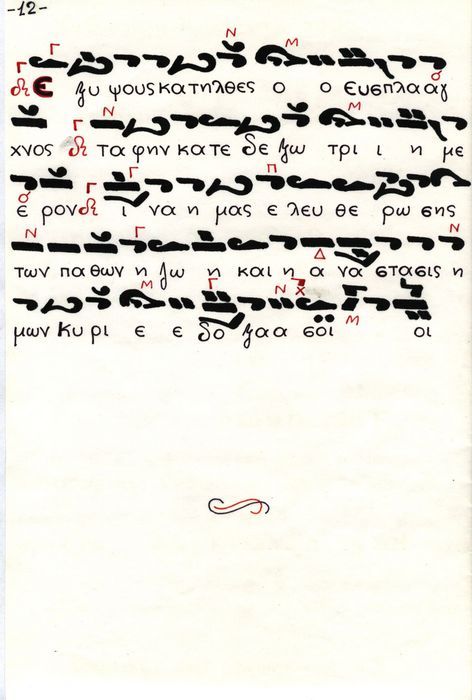 -12-
Ε ξυ ψους κατηλθες ο ο Ευσπλααγ
χνος ταφην κατε δε ξω τρι ι η με
ε ρον ι να η μας ε λευ θε ρω σης
των παθων η ζω η και η α να στασις η
μων Κυρι ε ε δο ξα α σοι οι